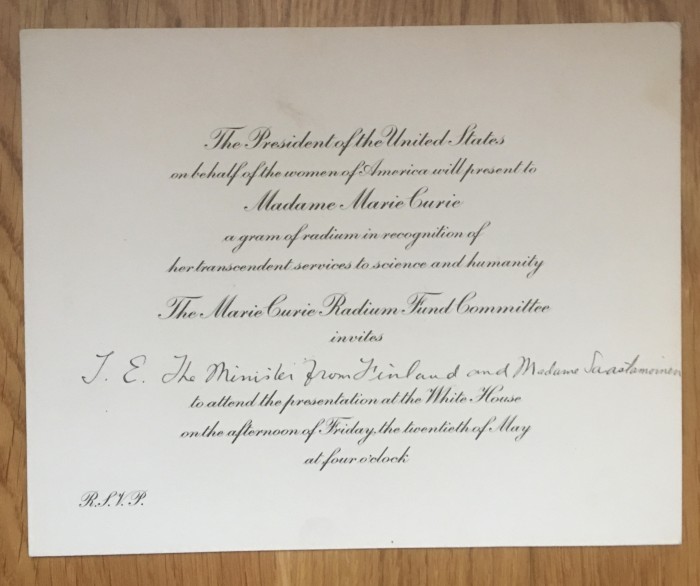 The President of the United States
on behalf of the women of America will present to
Madame Marie Curie
a gram of radium in recognition of
her transcendent services to science and humanity
The Marie Curie Radium Fund Committee
invites
T. E. The Minister from Finland and Madame Saastamoinen
to attend the presentation at the White House
on the afternoon of Friday, the twentieth of May
at four o'clock
R.S.V.P.